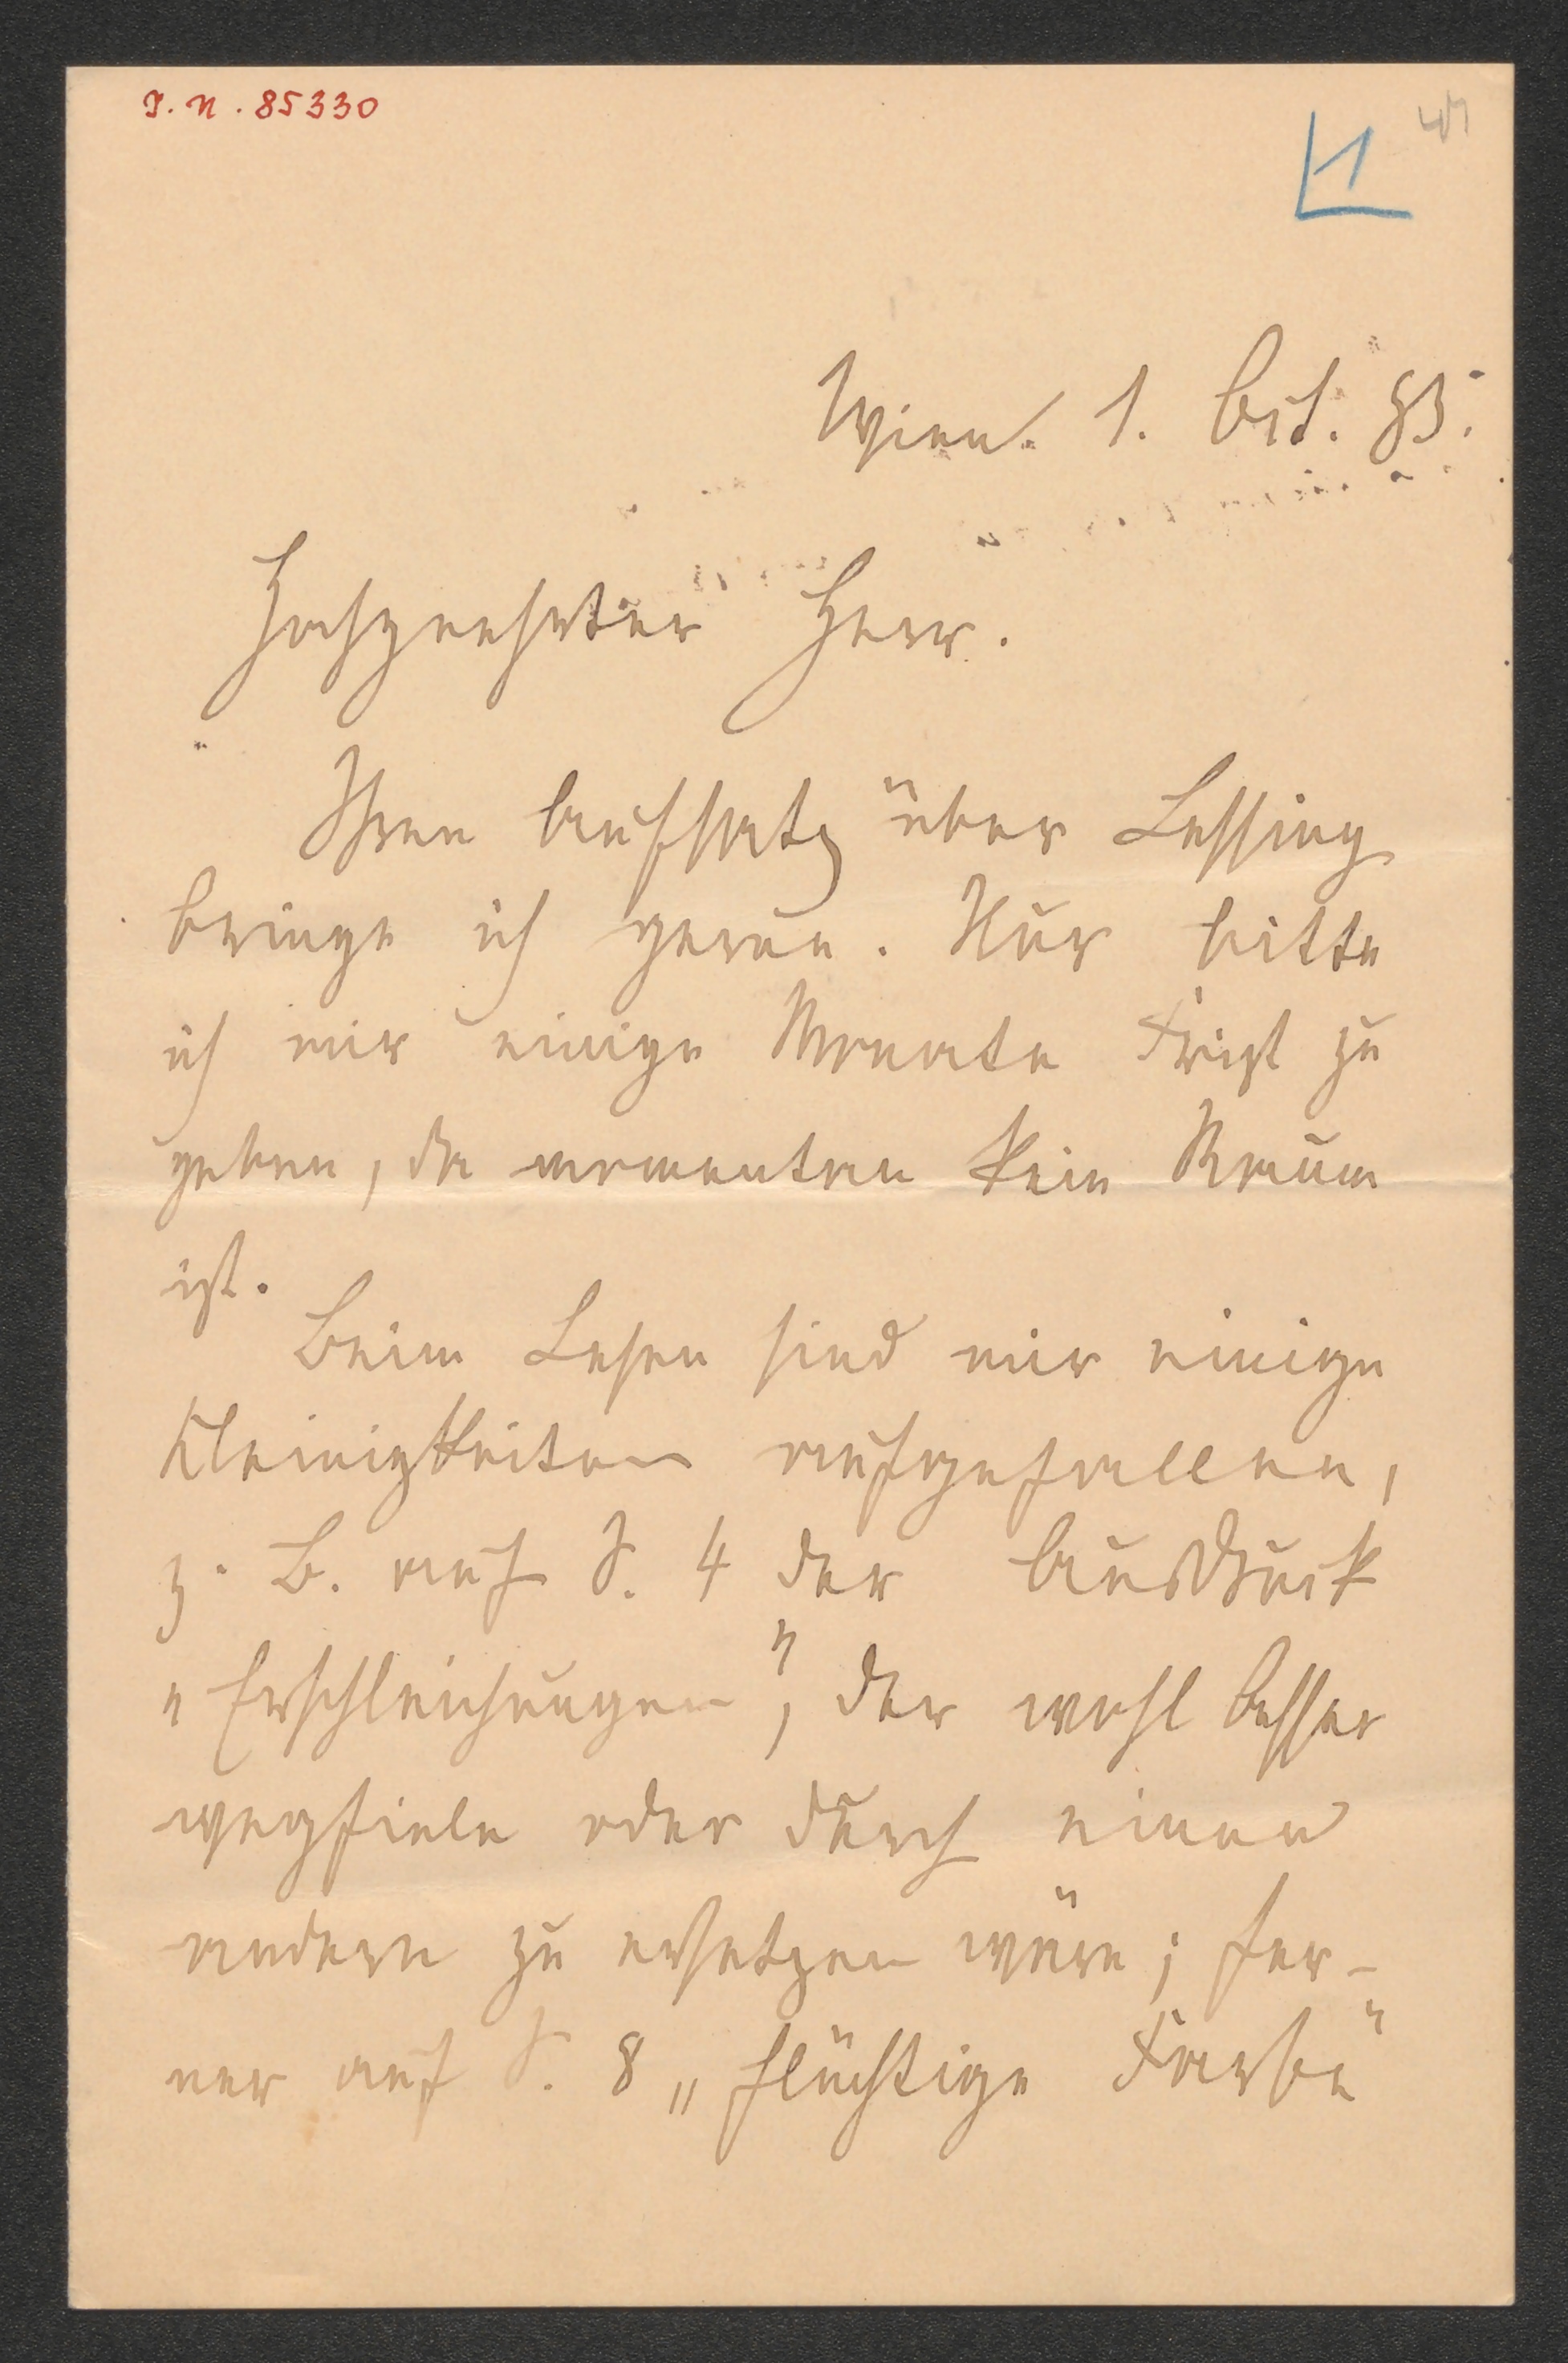 I. N. 85330
1
Wien. 1. Oct. 83.
Hochgeehrter Herr.
Ihren Aufsatz über Lessing
bringe ich gerne. Nur bitte
ich mir einige Monate Frist zu
geben, da momentan kein Raum
ist.
Beim Lesen sind mir einige
Kleinigkeiten aufgefallen,
z. B. auf S. 4 der Ausdruck
„Erschleichungen“, der wohl besser
wegfiele oder durch einen
andern zu ersetzen wäre; fer-
ner auf S. 8 „flüchtige Farbe“